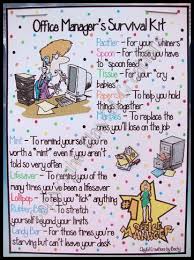 Office Manager's Survival Kit
Pacifier - For your "whiners"
Spoon - For those you have
to "spoon feed"
Tissue - For your "cry
babies"
Paperclip - To help you hold
things together
Marbles - To replace the
ones you'll lose on the job
Mint - To remind yourself you're
worth a "mint" even if you aren't
told so very often
Lifesaver - To remind you of the
many times you've been a lifesaver
Lollipop - To help you "lick" anything
Rubber Band - To stretch
yourself beyond your limits
Candy Bar - For those times you're
starving but can't leave your desk
Office
Manager